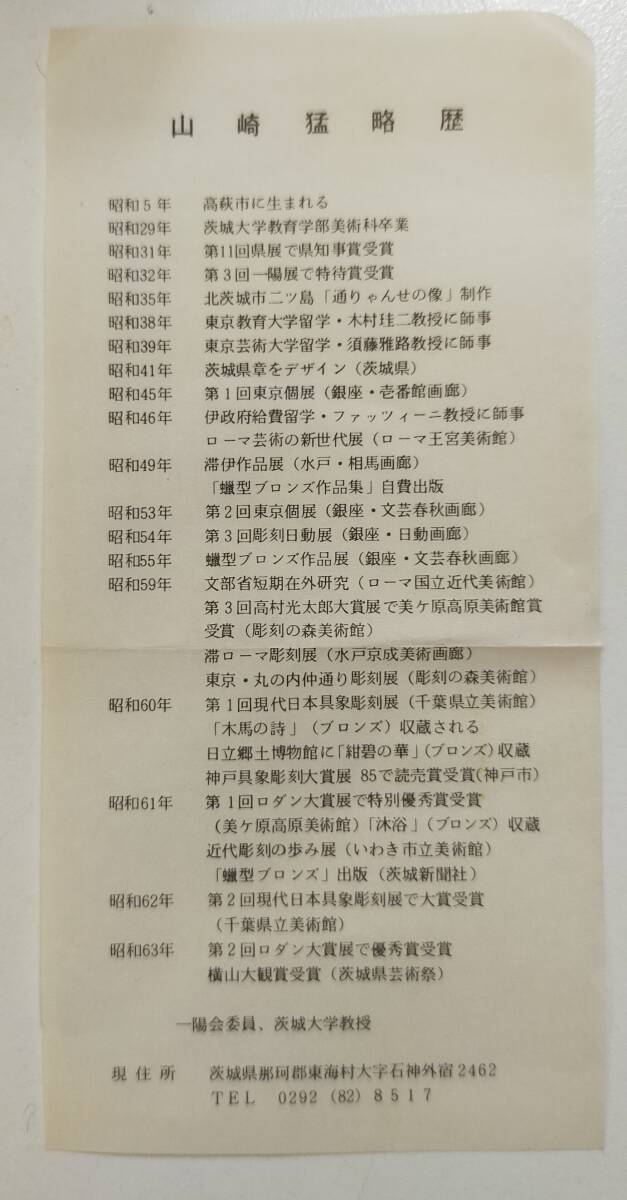 山崎猛略歴
昭和5年 高萩市に生まれる
昭和29年 茨城大学教育学部美術科卒業
昭和31年 第11回県展で県知事賞受賞
昭和32年 第3回一陽展で特待賞受賞
昭和35年 北茨城市二ツ島「通りゃんせの像」制作
昭和38年 東京教育大学留学・木村珪二教授に師事
昭和39年 東京芸術大学留学・須藤雅路教授に師事
昭和41年 茨城県章をデザイン（茨城県）
昭和45年 第1回東京個展（銀座・壱番館画廊）
昭和46年 伊政府給費留学・ファッツィーニ教授に師事
ローマ芸術の新世代展（ローマ王宮美術館）
昭和49年 滞伊作品展（水戸・相馬画廊）
「蠟型ブロンズ作品集」自費出版
昭和53年 第2回東京個展（銀座・文芸春秋画廊）
昭和54年 第3回彫刻日動展（銀座・日動画廊）
昭和55年 蠟型ブロンズ作品展（銀座・文芸春秋画廊）
昭和59年 文部省短期在外研究（ローマ国立近代美術館）
第3回高村光太郎大賞展で美ケ原高原美術館賞
受賞（彫刻の森美術館）
滞ローマ彫刻展（水戸京成美術画廊）
東京・丸の内仲通り彫刻展（彫刻の森美術館）
昭和60年 第1回現代日本具象彫刻展（千葉県立美術館）
「木馬の詩」（ブロンズ）収蔵される
日立郷土博物館に「紺碧の華」（ブロンズ）収蔵
神戸具象彫刻大賞展 85で読売賞受賞(神戸市)
昭和61年 第1回ロダン大賞展で特別優秀賞受賞
（美ケ原高原美術館）「沐浴」（ブロンズ）収蔵
近代彫刻の歩み展（いわき市立美術館）
「蠟型ブロンズ」出版（茨城新聞社）
昭和62年 第2回現代日本具象彫刻展で大賞受賞
（千葉県立美術館）
昭和63年 第2回ロダン大賞展で優秀賞受賞
横山大観賞受賞（茨城県芸術祭）
一陽会委員、茨城大学教授
現住所 茨城県那珂郡東海村大字石神外宿2462
TEL 0292（82）8517